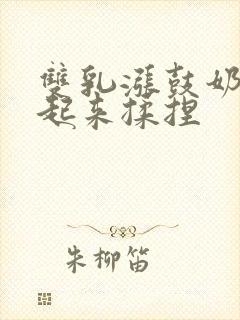 雙乳漲鼓奶
起来揉捏
朱柳笛